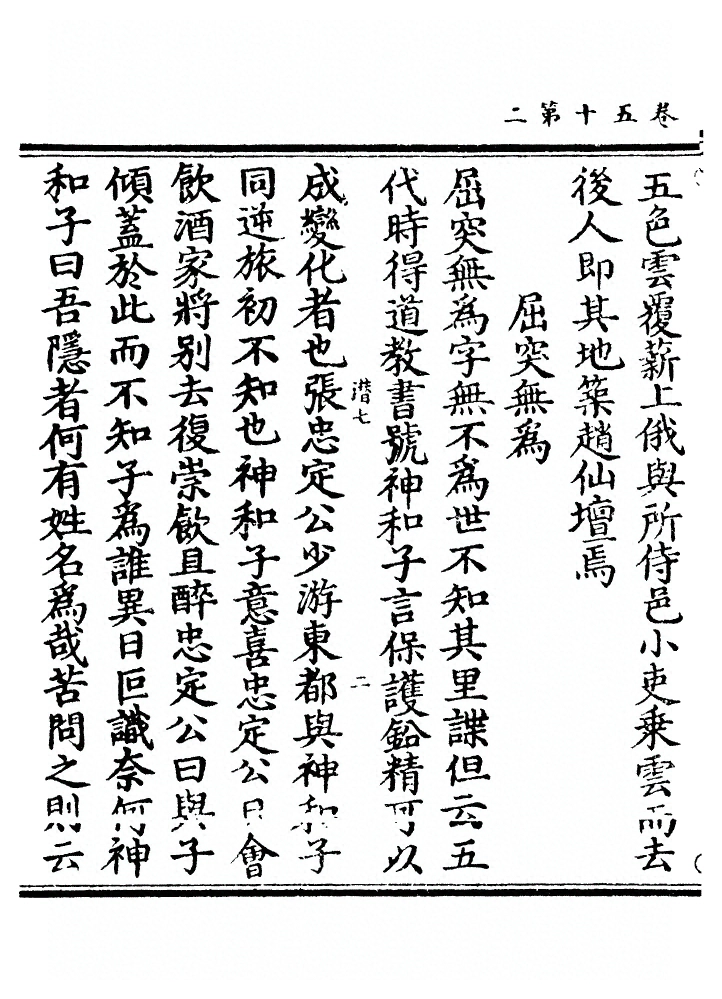 卷五十第二
五色雲覆薪上俄與所侍邑小吏乘雲而去
後人即其地築趙仙壇焉
屈突無爲
屈突無爲字無不爲世不知其里諜但云五
代時得道教書號神和子言保護鉛精可以
潛七
二
成變化者也張忠定公少游東都與神和子
同逆旅初不知也神和子意喜忠定公日會
飲酒家將别去復崇飲且醉忠定公曰與子
傾蓋於此而不知子爲誰異日叵識奈何神
和子曰吾隱者何有姓名爲哉苦問之則云